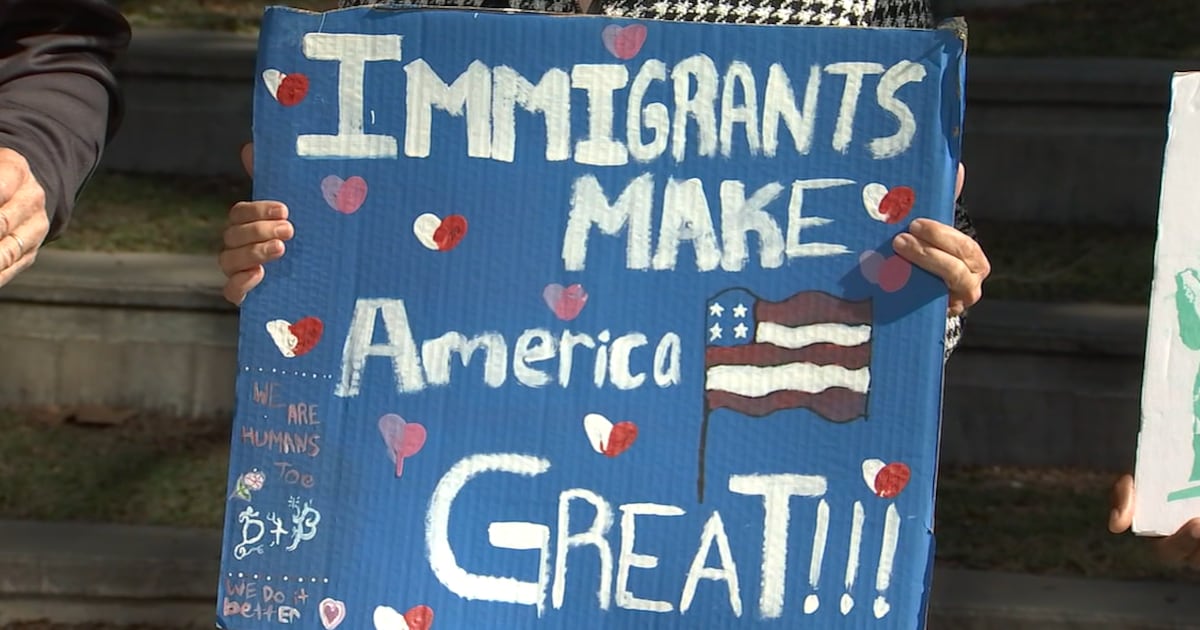 IMMIGRANTS
MAKE
America
GREAT!!!
WE
ARE
HUMANS
Too
B+B
WE DO it
better